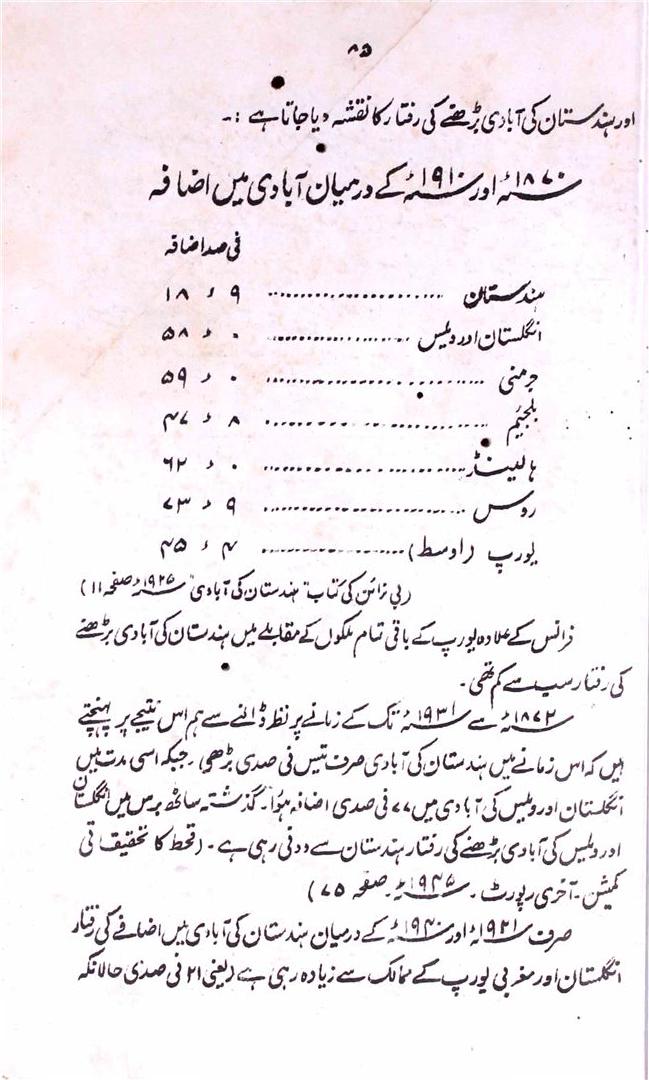 ۸۵
اور ہندستان کی آبادی بڑھنے کی رفتار کا نقشہ دیا جاتا ہے :۔
۱۸۷۰ء اور ۱۹۱۰ء کے درمیان آبادی میں اضافہ
فی صد اضافہ
ہندستان .................... ۱۸ء۹
انگلستان اور ویلس .................... ۵۸ء۰
جرمنی .................... ۵۹ء۰
بلجیُم .................... ۴۷ء۸
ہالینڈ .................... ۶۲ء۰
روس .................... ۷۳ء۹
یورپ (اوسط) .................... ۴۵ء۴
(بی نرائن کی کتاب "ہندستان کی آبادی" ۱۹۲۵ء صفحہ ۱۱)
فرانس کے علاوہ یورپ کے باقی تمام ملکوں کے مقابلے میں ہندستان کی آبادی بڑھنے
کی رفتار سب سے کم تھی۔
۱۸۷۲ء سے ۱۹۳۱ء تک کے زمانے پر نظر ڈالنے سے ہم اس نتیجے پر پہنچتے
ہیں کہ اس زمانے میں ہندستان کی آبادی صرف تیس فی صدی بڑھی۔ جبکہ اسی مدت میں
انگلستان اور ویلس کی آبادی میں ۷۷ فی صدی اضافہ ہُوا۔ گذشتہ ساٹھ برس میں انگلستان
اور ویلس کی آبادی بڑھنے کی رفتار ہندستان سے دونی رہی ہے۔ (قحط کا تحقیقاتی
کمیشن۔ آخری رپورٹ۔ ۱۹۴۵ء۔ صفحہ ۷۵)
صرف ۱۹۲۱ء اور ۱۹۴۰ء کے درمیان ہندستان کی آبادی میں اضافے کی رفتار
انگلستان اور مغربی یورپ کے ممالک سے زیادہ رہی ہے (یعنی ۲۱ فی صدی حالانکہ